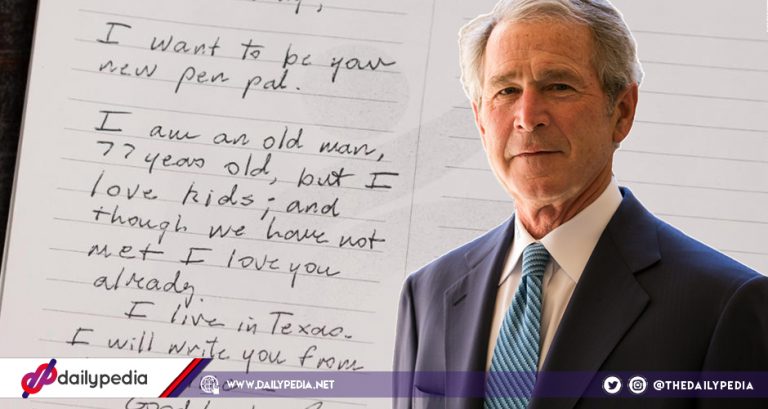 I want to be your
new pen pal.
I am an old man,
77 years old, but I
love kids; and
though we have not
met I love you
already.
I live in Texas-
I will write you from
dailypedia
WWW.DAILYPEDIA.NET
@THEDAILYPEDIA